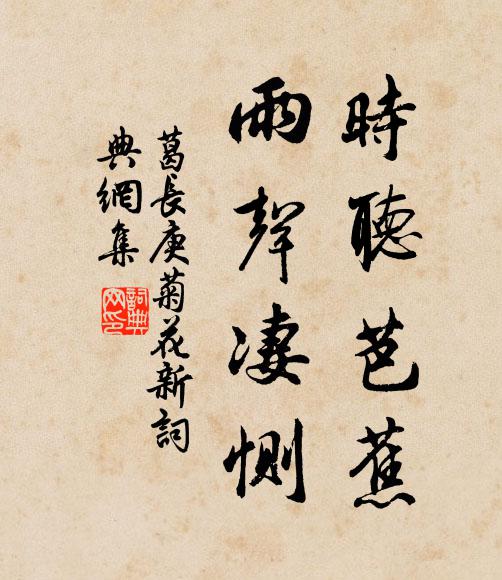 時聽芭蕉
雨聲凄惻
葛長庚菊花新詞
典網集
詞典網印